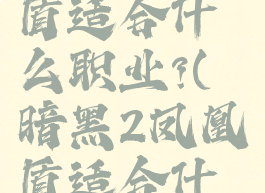 盾适合什
么职业?(
暗黑2凤凰
盾适合什